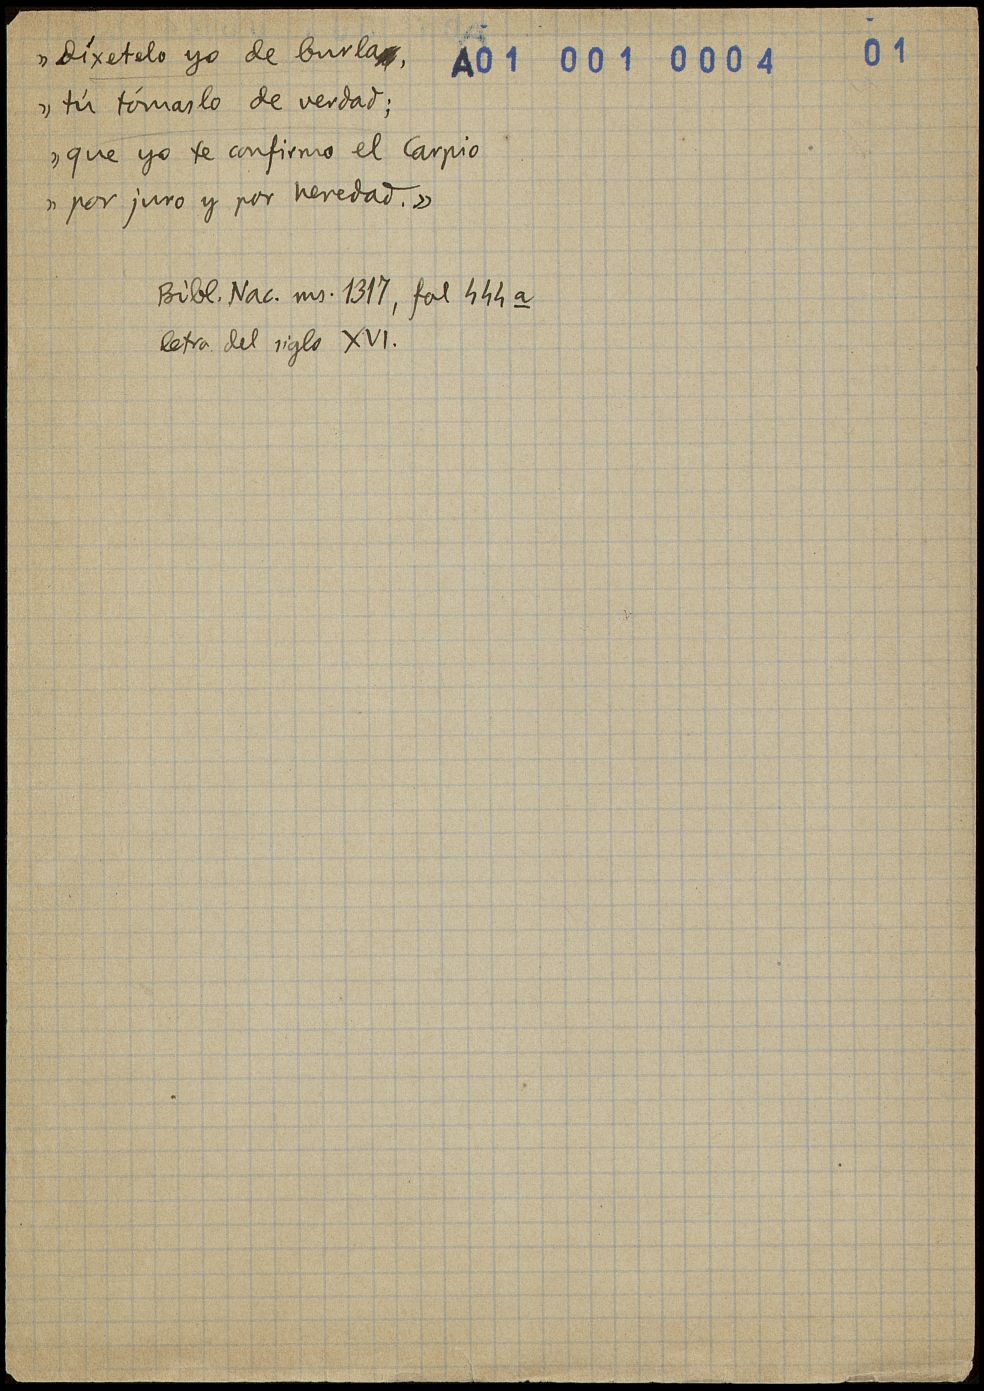 » díxetelo yo de burla,
A01 001 0004 01
» tú tómaslo de verdad;
» que yo te confirmo el Carpio
» por juro y por heredad.»
Bibl. Nac. ms. 1317, fol 444 a
letra del siglo XVI.